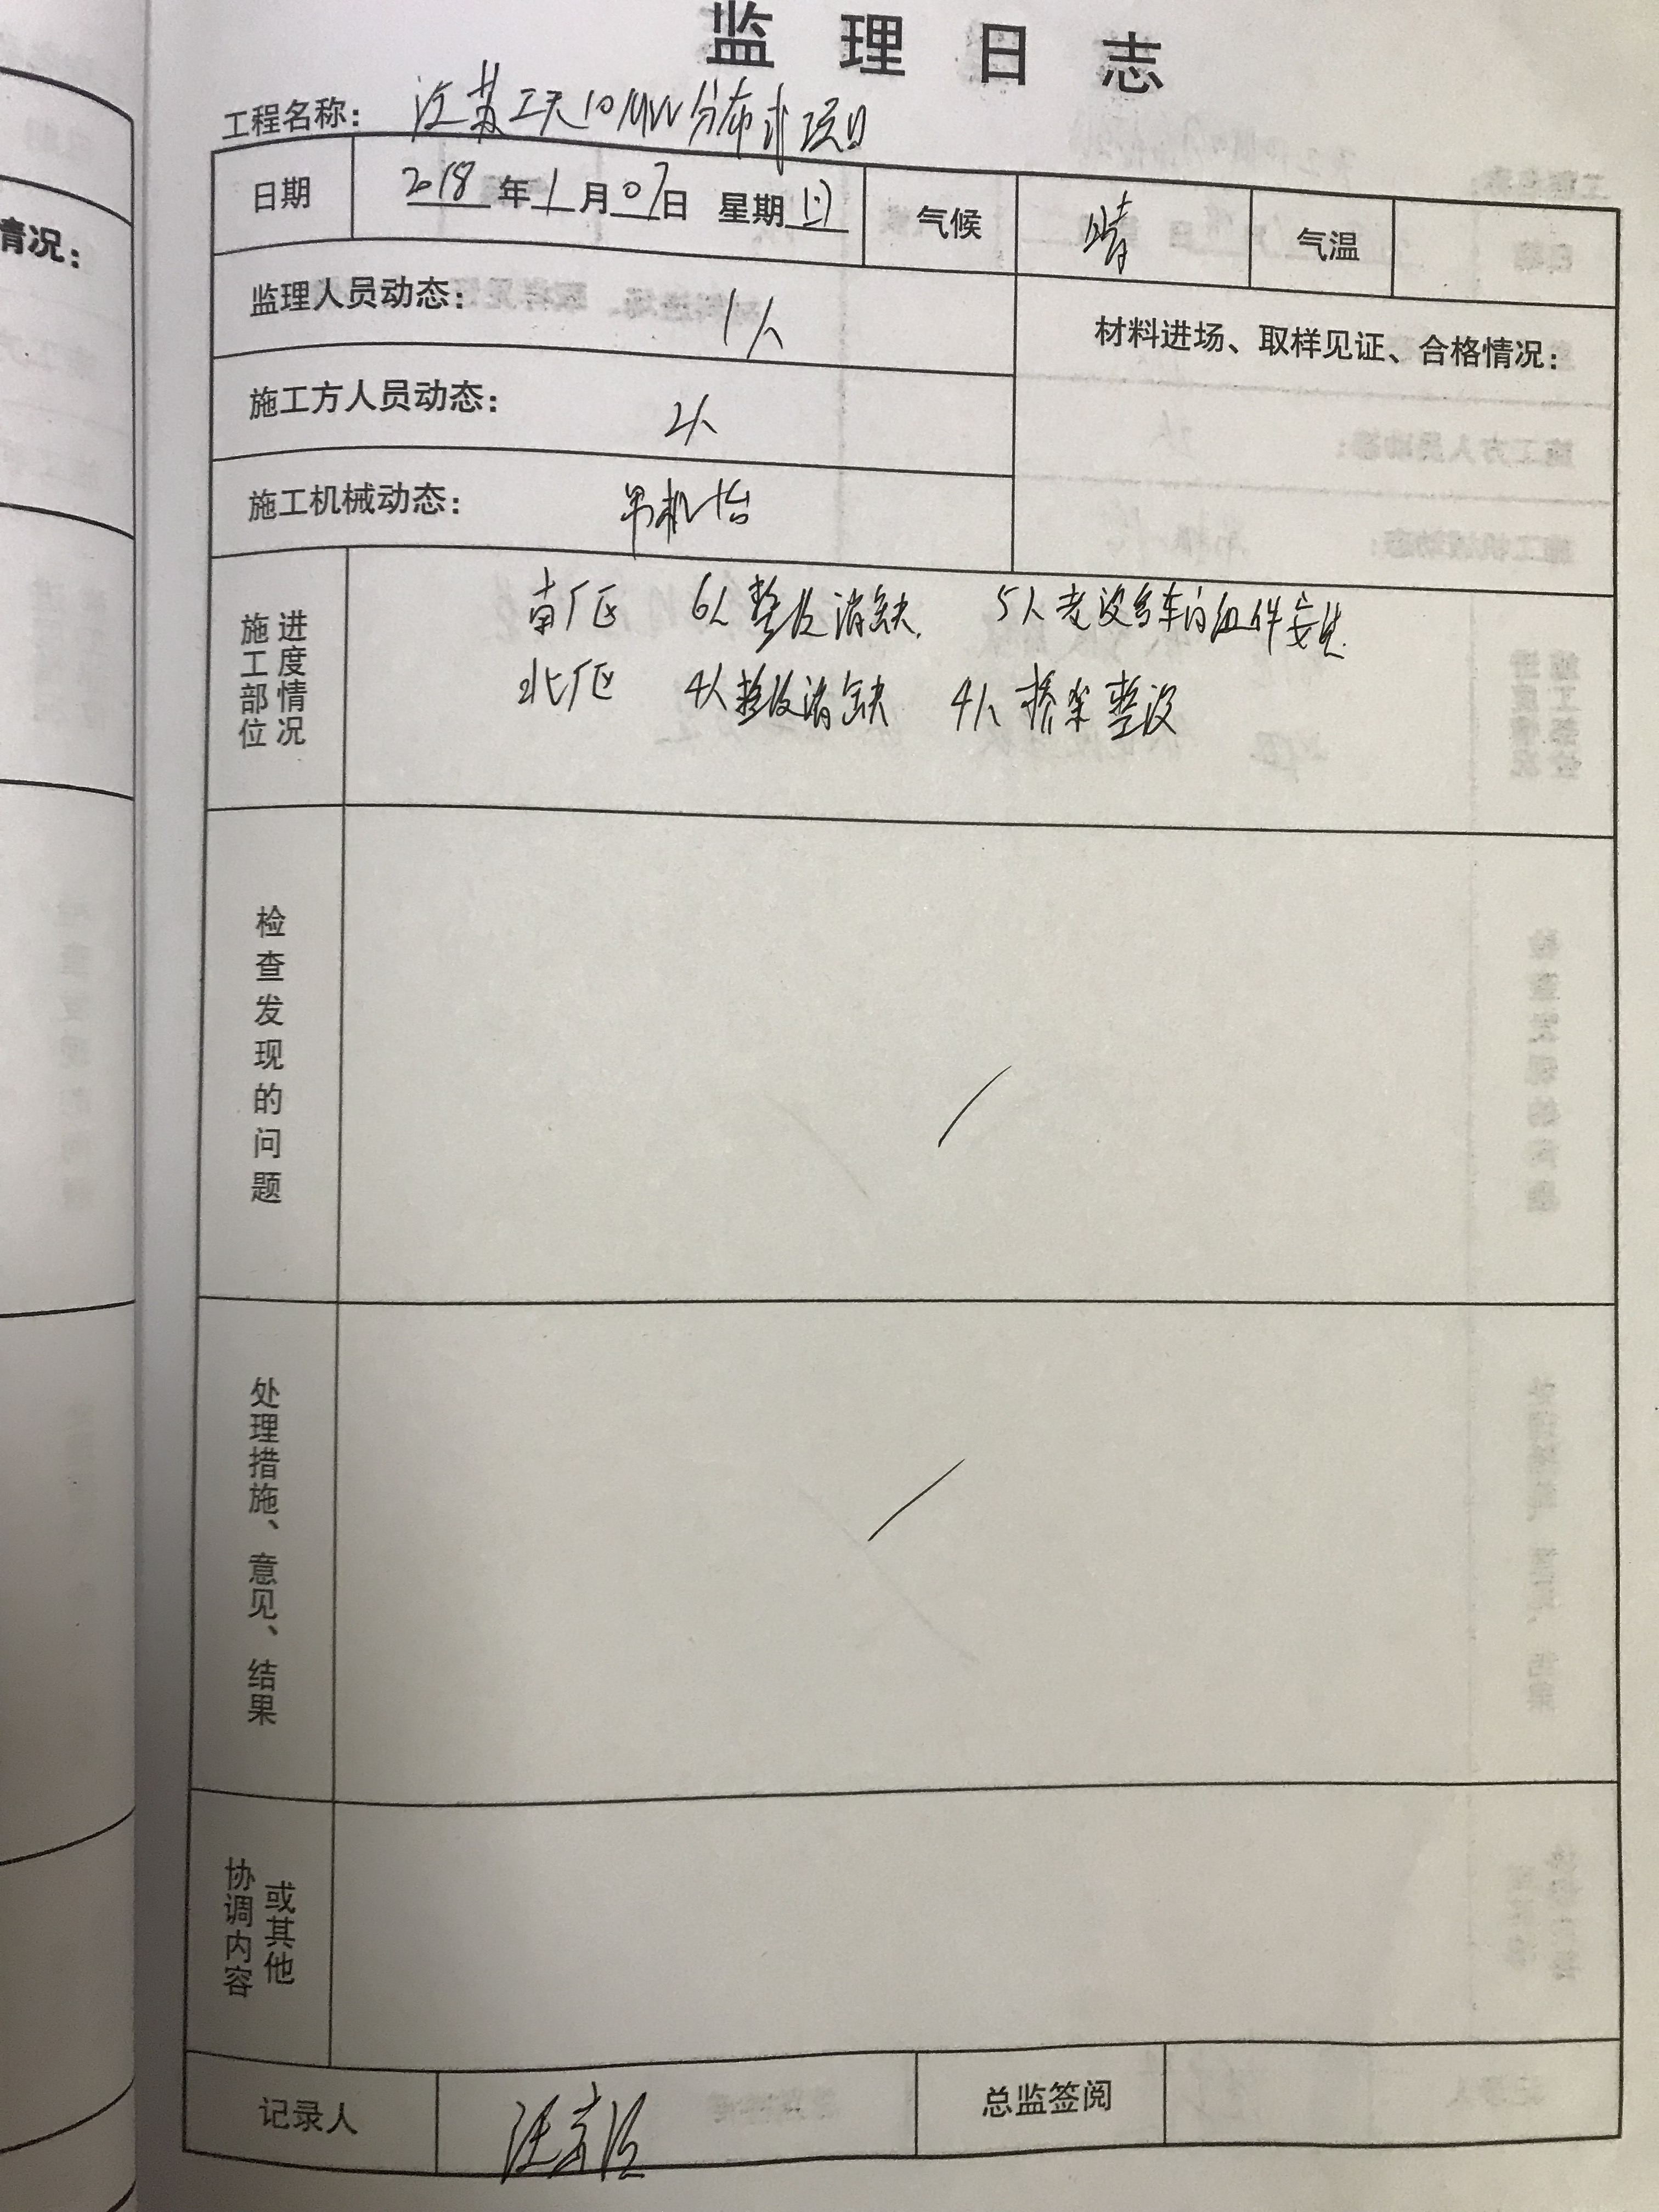 监理日志
工程名称: 江苏工天10MW分布式项目
日期 2018年1月07日 星期日 气候 晴 气温
监理人员动态: 1人
材料进场、取样见证、合格情况:
施工方人员动态: 2人
施工机械动态: 吊机1台
施工部位 进度情况
南厂区 6人整改消缺. 5人 组件安装.
北厂区 4人整改消缺 4人桥架整改
检查发现的问题 /
处理措施、意见、结果 /
协调内容 或其他
记录人 总监签阅
情况: